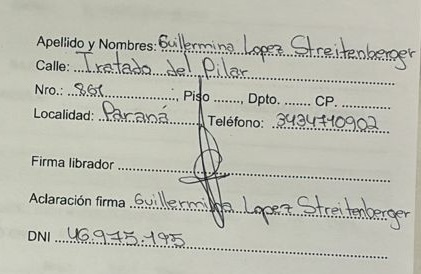 Apellido y Nombres: Guillermina Lopez Streitenberger
Calle: Tratado del Pilar
Nro.: 861, Piso ......., Dpto. ....... CP. .............
Localidad: Paraná Teléfono: 3434710902
Firma librador
Aclaración firma Guillermina Lopez Streitenberger
DNI 46.975.195